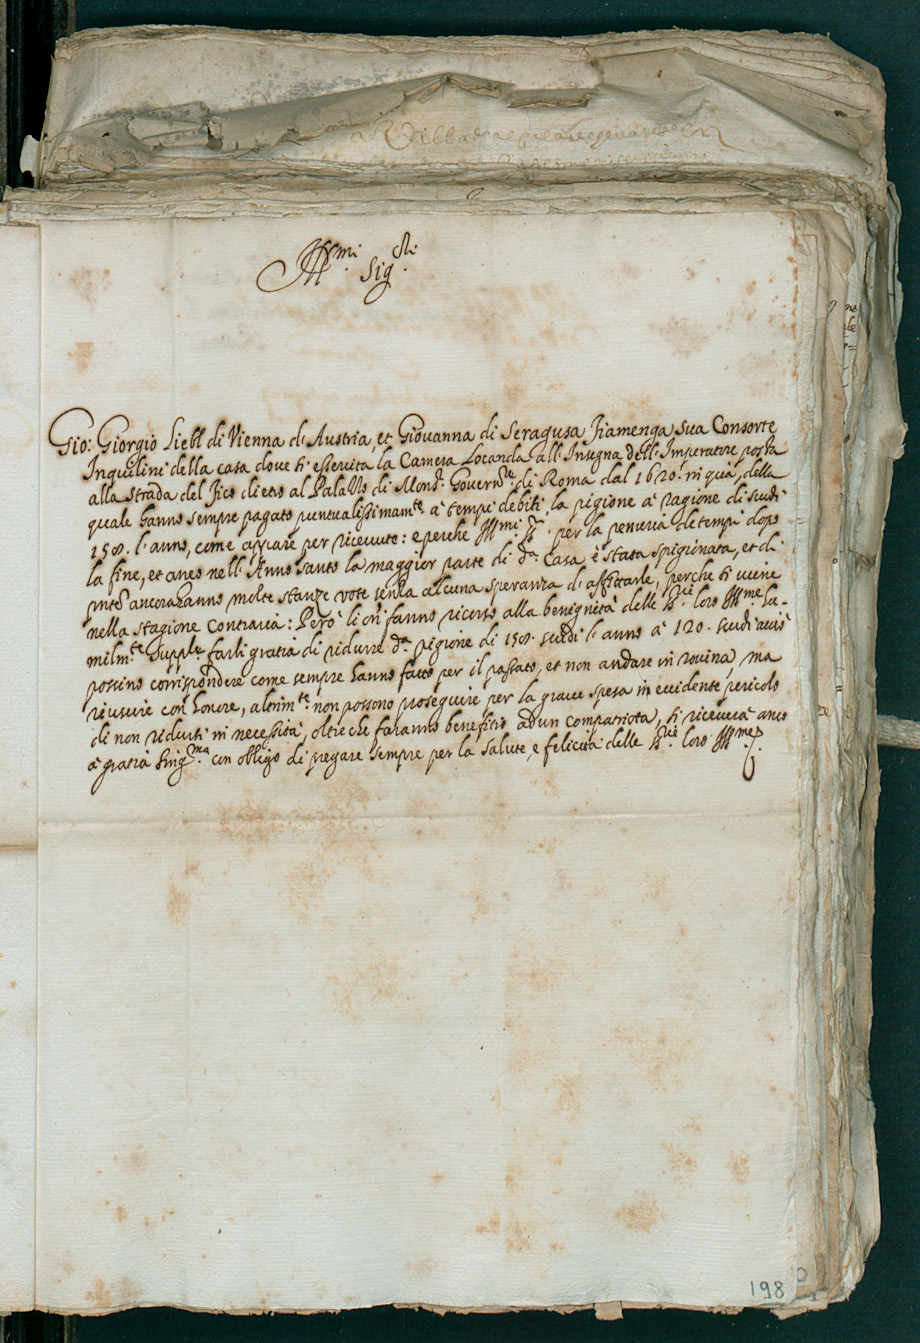 Ill.mi Sig.ri
Gio: Giorgio Liebl di Vienna d'Austria, et Giovanna di Seragusa Fiamenga sua Consorte
Inquilini della casa dove si essercita la Camera Locanda all'Insegna dell'Imperatore, posta
alla strada del Fico dietro al Palazzo di Mons.r Govern.re di Roma dal 1620. in quà, della
quale hanno sempre pagato puntualissimam.te à tempi debiti, la pigione à ragione di scudi
150. l'anno, come appare per ricevute: e perche Ill.mi SS.ri per la penuria de tempi dopo
la fine, et anco nell'Anno santo la maggior parte di d.a Casa è stata spigionata, et di
pnte ancora hanno molte stanze vote senza alcuna speranza di affittarle, perche si viene
nella stagione contraria: Però li orī fanno ricorso alla benignità delle SS.rie loro Ill.me hu-
milm.te suppl.o farli gratia di ridurre d.a pigione di 150. scudi l'anno à 120. scudi acciò
possino corrispondere come sempre hanno fatto per il passato, et non andare in rovina, ma
riuscire con honore, altrim.te non possono proseguire per la grave spesa in evidente pericolo
di non ridursi in necessità, oltre che faranno beneficio ad un compatriota, si riceverà anco
à gratia sing.ma con obligo di pregare sempre per la salute, e felicità delle SS.rie loro Ill.me
198